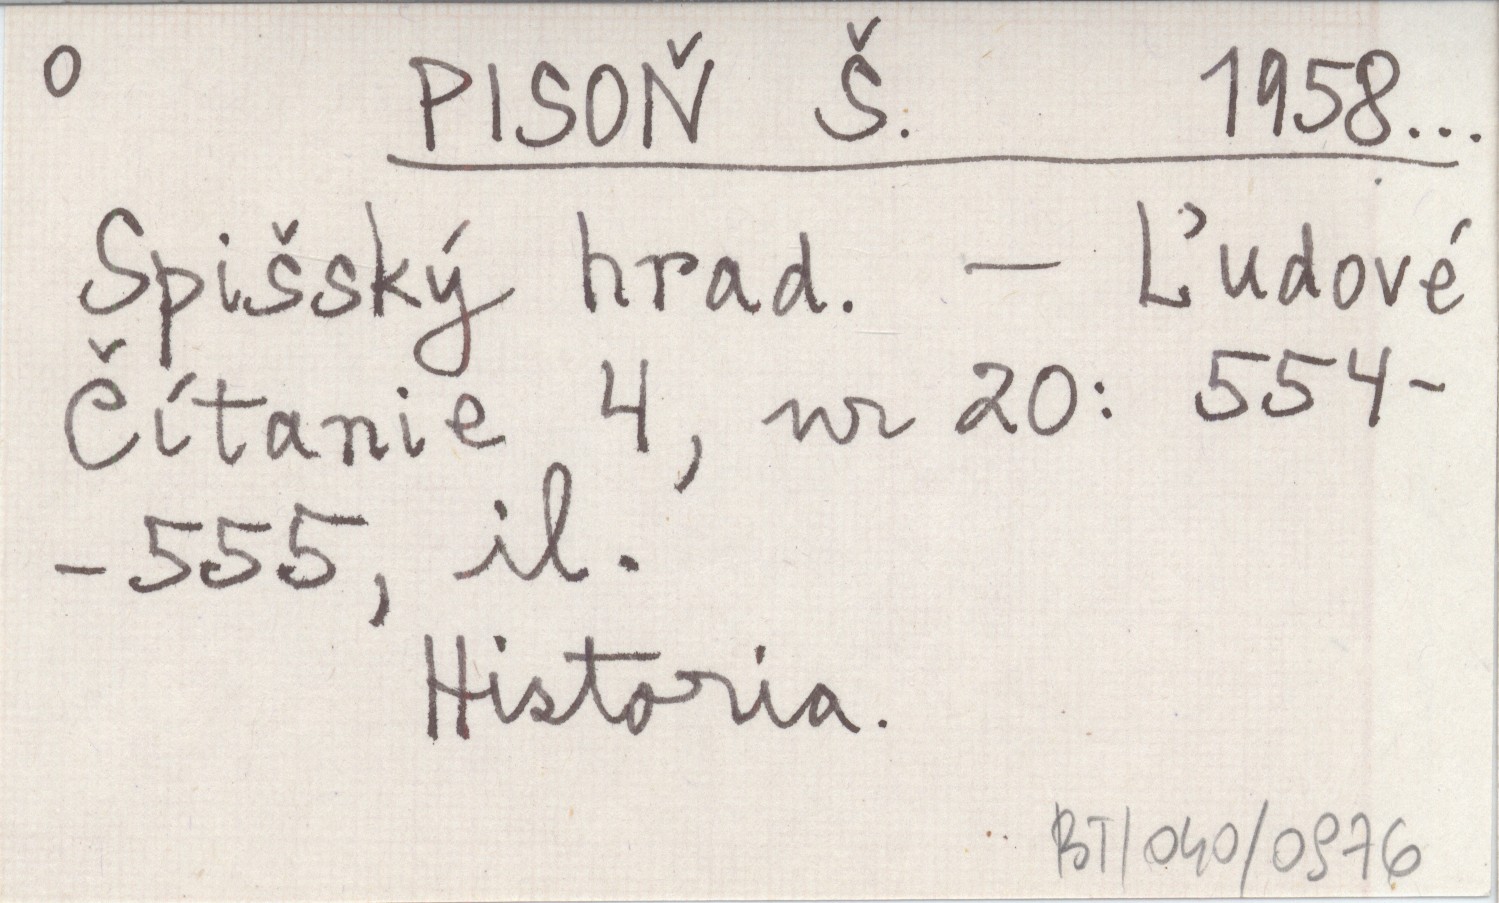 O PISOŇ Š. 1958...
Spišský hrad. — Ľudové
Čítanie 4, nr 20: 554-
-555, il.
Historia.
BT/040/0976